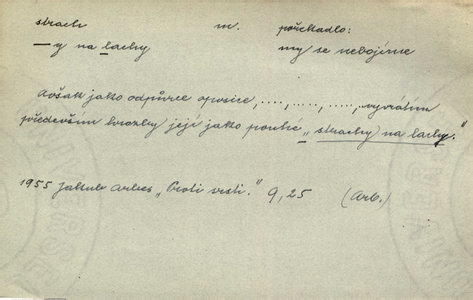 strach m. pořekadlo:
—y na lachy my se nebojíme
Avšak jako odpůrce oposice, ...., ....., ....., vyvrátím
především hrozby její jako pouhé „strachy na lachy."
1955 Jakub Arbes „Proti vrsti." 9, 25 (Arb.)